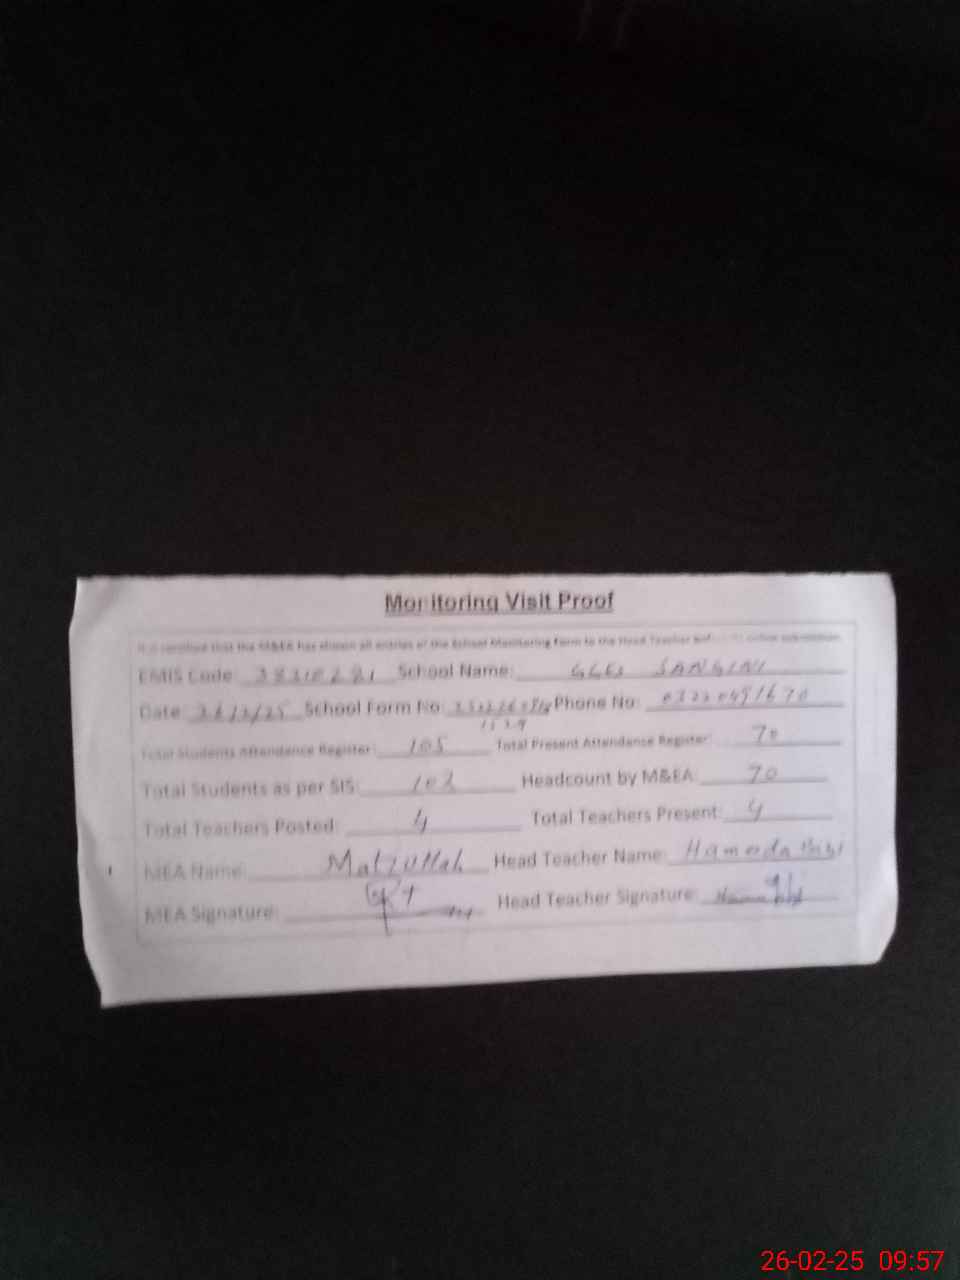 Monitoring Visit Proof
It is certified that the M&EA has shown all entries of the School Monitoring Form to the Head Teacher before online submission
EMIS Code: School Name: SANGINI
Date: 26/2/25 School Form No: Phone No:
Total Students Attendance Register: 105 Total Present Attendance Register: 70
Total Students as per SIS: 102 Headcount by M&EA: 70
Total Teachers Posted: 4 Total Teachers Present: 4
MEA Name: Head Teacher Name: Hameeda Bibi
MEA Signature: Head Teacher Signature:
26-02-25 09:57